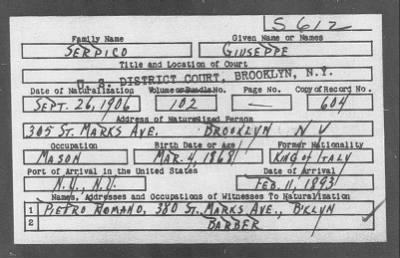 S 612
Family Name Given Name or Names
SERPICO GIUSEPPE
Title and Location of Court
U. S. DISTRICT COURT, BROOKLYN, N.Y.
Date of Naturalization Volume or Bundle No. Page No. Copy of Record No.
SEPT. 26, 1906 102 — 604
Address of Naturalized Person
305 ST. MARKS AVE. BROOKLYN N Y
Occupation Birth Date or Age Former Nationality
MASON MAR. 4, 1868 KING OF ITALY
Port of Arrival in the United States Date of Arrival
N.Y., N.Y. FEB. 11, 1893
Names, Addresses and Occupations of Witnesses To Naturalization
1 PIETRO ROMANO, 380 ST. MARKS AVE., B'KLYN
2 BARBER